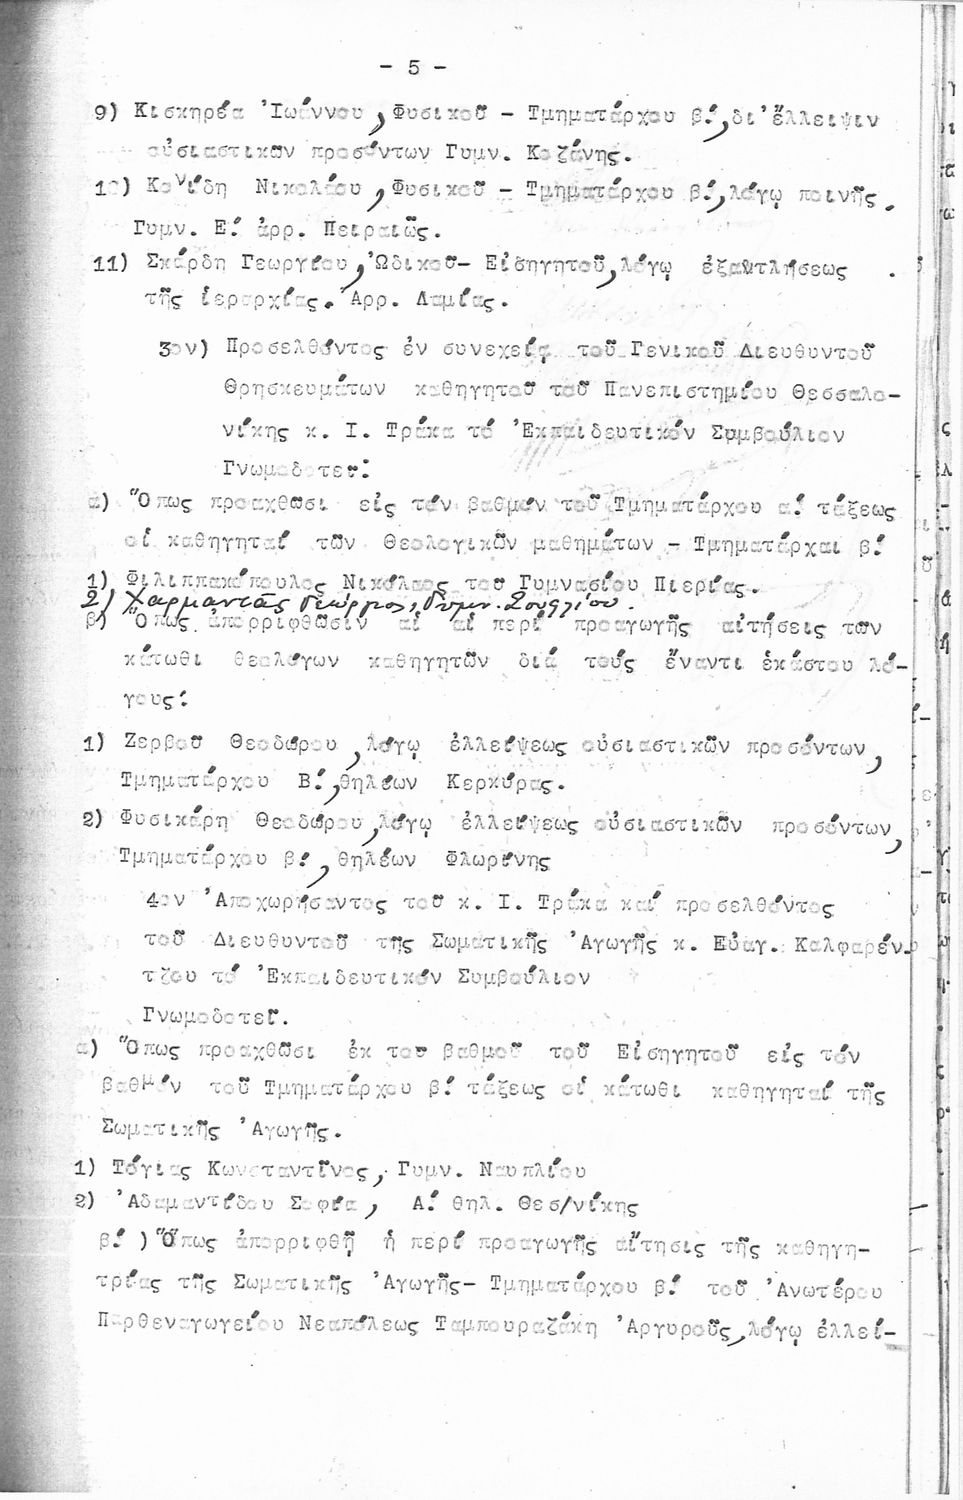 - 5 -
9) Κισκηρέα Ἰωάννου, Φυσικοῦ - Τμηματάρχου β΄, δι' ἔλλειψιν
οὐσιαστικων προσόντων Γυμν. Κοζάνης.
10) Κονίδη Νικολάου, Φυσικοῦ - Τμηματάρχου β΄, λόγῳ ποινῆς.
Γυμν. Ε΄ ἀρρ. Πειραιῶς.
11) Σκάρδη Γεωργίου, Ὠδικοῦ- Εἰσηγητοῦ, λόγῳ ἐξαντλήσεως .
τῆς ἱεραρχίας. Ἀρρ. Λαμίας.
3ον) Προσελθόντος ἐν συνεχείᾳ τοῦ Γενικοῦ Διευθυντοῦ
Θρησκευμάτων καθηγητοῦ τοῦ Πανεπιστημίου Θεσσαλο-
νίκης κ. Ι. Τράκα τό Ἐκπαιδευτικόν Συμβούλιον
Γνωμοδοτεῖ:
α) Ὅπως προαχθῶσι εἰς τόν βαθμόν τοῦ Τμηματάρχου α΄ τάξεως
οἱ καθηγηταί τῶν Θεολογικῶν μαθημάτων - Τμηματάρχαι β΄
1) Φιλιππακόπουλος Νικόλαος του Γυμνασίου Πιερίας.
2) Χαρμαντᾶς Γεώργιος, Γυμν. Σουφλίου.
β) Ὅπως ἀπορριφθῶσιν αἱ αἱ περί προαγωγῆς αἰτήσεις των
κάτωθι θεολόγων καθηγητῶν διά τούς ἔναντι ἑκάστου λό-
γους:
1) Ζερβοῦ Θεοδώρου, λόγῳ ἐλλείψεως οὐσιαστικῶν προσόντων,
Τμηματάρχου Β΄, θηλέων Κερκύρας.
2) Φυσικάρη Θεοδώρου, λόγῳ ἐλλείψεως οὐσιαστικῶν προσόντων,
Τμηματάρχου β΄, θηλέων Φλωρίνης
4ον Ἀποχωρήσαντος τοῦ κ. Ι. Τράκα καί προσελθόντος
τοῦ Διευθυντοῦ της Σωματικῆς Ἀγωγῆς κ. Εὐαγ. Καλφαρέν-
τζου τό Ἐκπαιδευτικόν Συμβούλιον
Γνωμοδοτεῖ.
α) Ὅπως προαχθῶσι ἐκ του βαθμοῦ τοῦ Εἰσηγητοῦ εἰς τόν
βαθμόν τοῦ Τμηματάρχου β΄ τάξεως οἱ κάτωθι καθηγηταί τῆς
Σωματικῆς Ἀγωγῆς.
1) Τόγιας Κωνσταντῖνος, Γυμν. Ναυπλίου
2) Ἀδαμαντίδου Σοφία, Α΄ θηλ. Θεσ/νίκης
β΄ ) Ὅπως ἀπορριφθῇ ἡ περί προαγωγῆς αἴτησις τῆς καθηγη-
τρίας τῆς Σωματικῆς Ἀγωγῆς- Τμηματάρχου β΄ τοῦ Ἀνωτέρου
Παρθεναγωγείου Νεαπόλεως Ταμπουραζάκη Ἀργυροῦς, λόγῳ ἐλλεί-